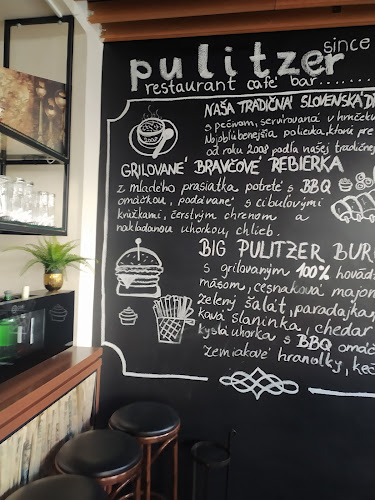 since
pulitzer
restaurant café bar........
NAŠA TRADIČNÁ SLOVENSKÁ
s pečivom, servírovaná v hrnčeku
Najobľúbenejšia polievka, ktorá pre
od roku 2008 podľa našej tradičnej
2008
GRILOVANÉ BRAVČOVÉ REBIERKA
z mladého prasiatka potreté s BBQ
omáčkou, podávané s cibuľovými
krúžkami, čerstvým chrenom a
nakladanou uhorkou, chlieb.
BIG PULITZER BUR
s grilovaným 100% hovädz
mäsom, cesnaková majon
zelený šalát, paradajka,
kavá slaninka, chedar
kyslá uhorka s BBQ omáč
zemiakové hranolky, keč